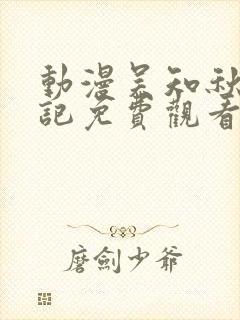 動漫吳知秋
記免費觀看
磨劍少爺